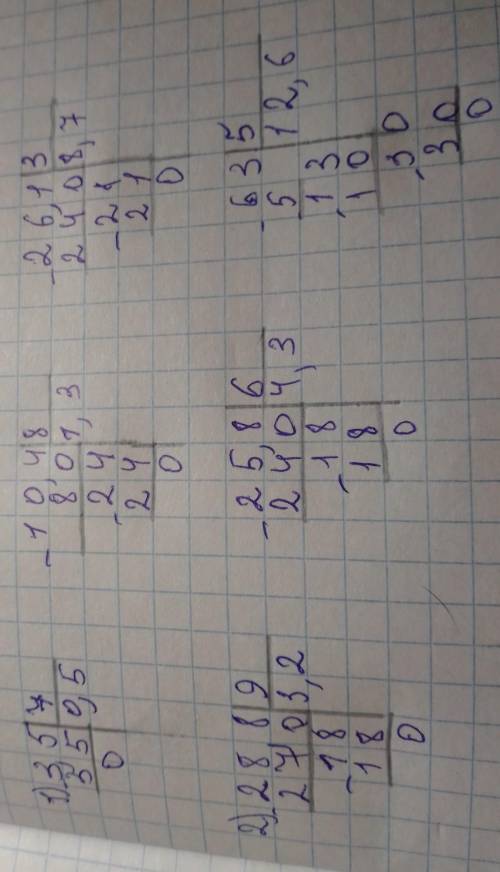 1) 3,5 7
3 5 0,5
0
- 1 0,4 8
8 0 1,3
- 2 4
2 4
0
- 2 6,1 3
2 4 0 8,7
- 2 1
2 1
0
2) - 2 8 8 9
2 7 0 3,2
- 1 8
1 8
0
- 2 5,8 6
2 4 0 4,3
- 1 8
1 8
0
- 6 3 5
5 1 2,6
- 1 3
1 0
- 3 0
3 0
0